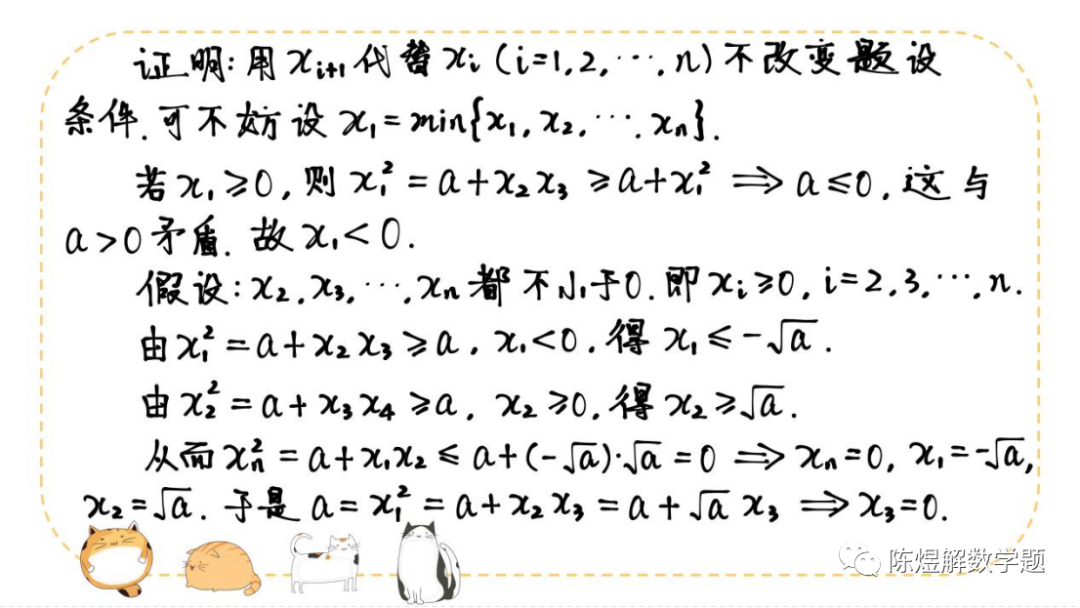 证明:用 x_{i+1} 代替 x_i (i=1,2,⋯,n) 不改变题设
条件.可不妨设 x_1=min{x_1,x_2,⋯,x_n}.
若 x_1≥0,则 x_1^2=a+x_2x_3≥a+x_1^2 ⟹ a≤0,这与
a>0矛盾.故 x_1<0.
假设:x_2,x_3,⋯,x_n都不小于0.即 x_i≥0,i=2,3,⋯,n.
由 x_1^2=a+x_2x_3≥a,x_1<0,得 x_1≤-√a.
由 x_2^2=a+x_3x_4≥a,x_2≥0,得 x_2≥√a.
从而 x_n^2=a+x_1x_2≤a+(-√a)·√a=0 ⟹ x_n=0,x_1=-√a,
x_2=√a.于是 a=x_1^2=a+x_2x_3=a+√a x_3 ⟹ x_3=0.
陈煜解数学题